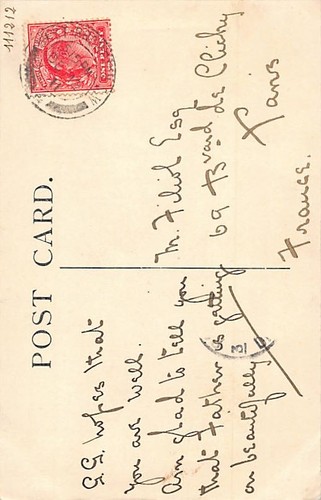 111212
POST CARD.
G.G. hopes that
you are well.
Am glad to tell you
that Father is getting
on beautifully
M. Filiol Esq.
69 Bvard de Clichy
Paris
France.